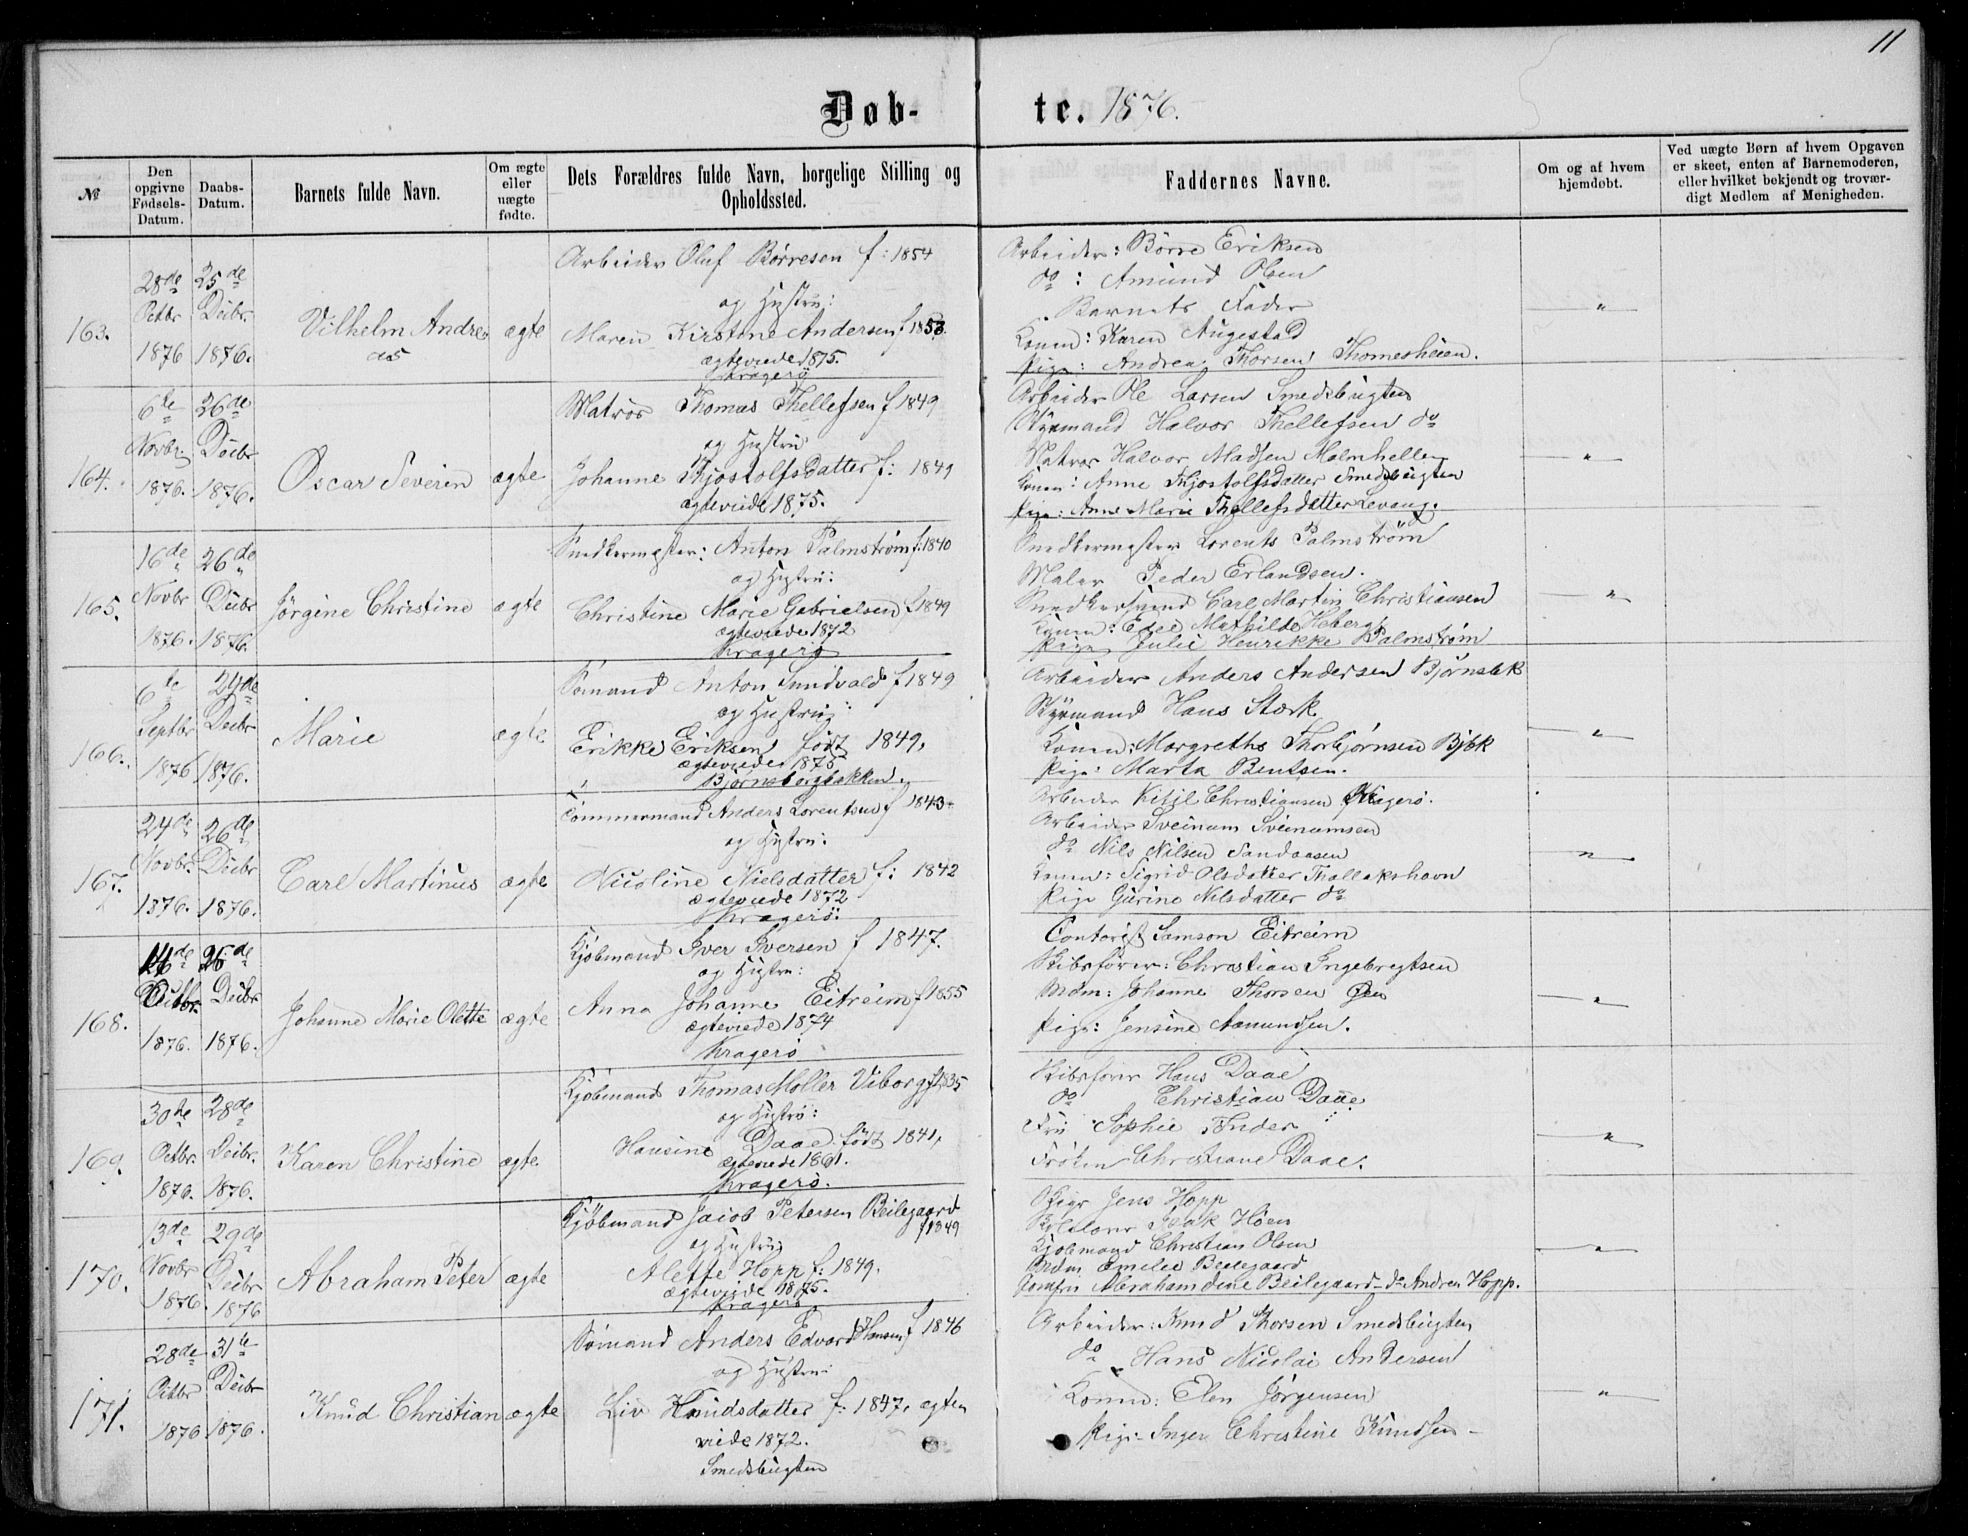 11
Døb-
te. 1876.
№
Den opgivne Fødsels-Datum.
Daabs-Datum.
Barnets fulde Navn.
Om ægte eller uægte fødte.
Dets Forældres fulde Navn, borgelige Stilling og Opholdssted.
Faddernes Navne.
Om og af hvem hjemdøbt.
Ved uægte Børn af hvem Opgaven er skeet, enten af Barnemoderen, eller hvilket bekjendt og troværdigt Medlem af Menigheden.
163.
28de Octbr 1876
25de Decbr. 1876.
Vilhelm Andreas
ægte
Arbeider Oluf Børresen f: 1854
og Hustru:
Maren Kirstine Andersen f 1853.
ægteviede 1875.
Kragerö
Arbeider: Börre Eriksen
do : Amund Olsen
Barnets Fader
Konen: Karen Augestad
Pige: Andrea Thorsen Thomesheien.
"
164.
6te Novbr. 1876.
26de Decbr 1876.
Oscar Severin
ægte
Matros Thomas Thellefsen f 1849
og Hustru
Johanne Kjostolfsdatter f: 1849
ægteviede 1875.
Arbeider Ole Larsen Smedsbugten
Styrmand Halvor Thellefsen do
Matros Halvor Madsen Malmhellen
Konen: Anne Kjostolfsdatter Smedsbugten
Pige: Anne Marie Thellefsdatter Levang.
"
165.
16de Novbr 1876.
26de Decbr 1876.
Jørgine Christine
ægte
Snedkermester: Anton Palmstrøm f: 1840
og Hustru:
Christine Marie Gabrielsen f 1849
ægteviede 1872
Kragerø
Snedkermester Lorents Palmstrøm
Maler Peder Erlandsen.
Snedkersvend Carl Martin Christiansen
Konen: Mathilde Heberg
Pige Julie Henrikke Palmstrøm
"
166.
6te Septbr 1876
24de Decbr 1876.
Marie
ægte
Sömand Anton Sundvald f 1849
og Hustru:
Erikke Eriksen født 1849,
ægteviede 1875
Bjørnsborgbakken.
Arbeider Anders Andersen Bjørnsbk
Styrmand Hans Stærk.
Konen: Margrethe Thorbjørnsen Bjbk
Pige: Marta Bentsen.
"
167.
24de Novbr. 1876.
26de Decbr 1876.
Carl Martinus
ægte
Tömmermand Anders Lorentsen f 1843
og Hustru:
Nicoline Nielsdatter f: 1842
ægteviede 1872
Kragerö.
Arbeider Kitil Christiansen Kragerö.
Arbeider Sveinum Sveinumsen
do Nils Nilsen Sandaasen
Konen: Sigrid Olsdatter Thallakshavn
Pige Gurine Nilsdatter do
"
168.
14de Octbr. 1876.
26de Decbr 1876.
Johanne Marie Olette
ægte
Kjøbmand Iver Iversen f 1847.
og Hustru:
Anna Johanne Eitreim f 1855
ægteviede 1874
Kragerö
Contorist Samson Eitreim
Skibsfører: Christian Ingebregtsen
Mdm: Johanne Thorsen Øen
Pige: Jensine Aamundsen.
"
169.
30te Octbr. 1876.
28de Decbr. 1876.
Karen Christine
ægte
Kjøbmand Thomas Møller Viborg f 1835
og Hustru:
Hansine Daae født 1841,
ægteviede 1861.
Kragerö.
Skibsfører Hans Daae
do Christian Daae
Fru Sophie
Frøken Christiane Daae.
"
170.
13de Novbr 1876.
29de Decbr 1876
Abraham Peter
ægte
Kjøbmand Jacob Petersen Beilegaard
f 1849
og Hustru
Alette Hopp f: 1849.
ægteviede 1875.
Kragerö
Jens Hopp
Isak Höen
Kjøbmand Christian Olsen
Mdm Emelie Beilegaard
Jomfru Abrahamdine Beilegaard - do Andrea Hopp.
"
171.
28de Octbr 1876
31te Decbr 1876.
Knud Christian
ægte
Sömand Anders Edvard Hansen f 1846
og Hustru:
Liv Knudsdatter f: 1847, ægte
viede 1872.
Smedsbugten
Arbeider: Knud Thorsen Smedsbugten
do Hans Nicolai Andersen
Konen: Elen Jörgensen
Pige: Inger Christine Knudsen
"